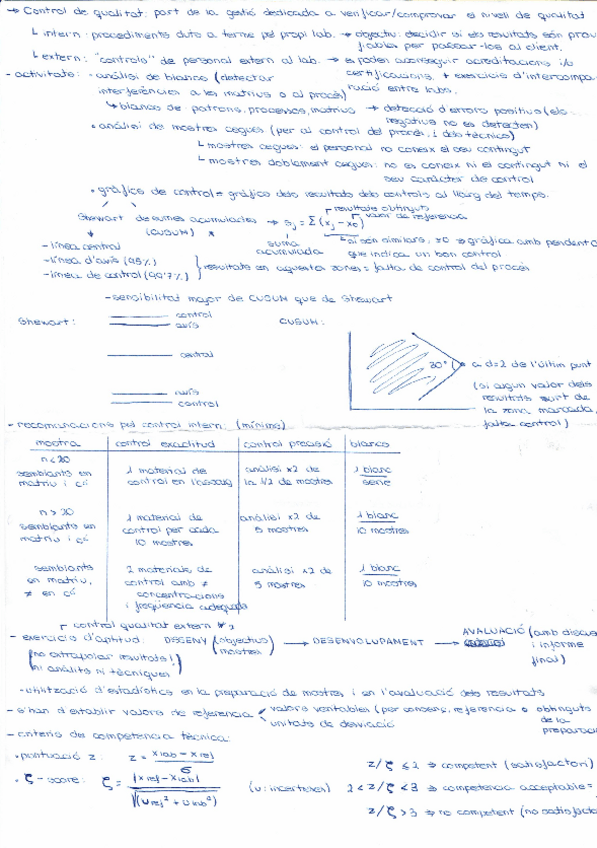 → Control de qualitat: part de la gestió dedicada a verificar/comprovar el nivell de qualitat
↳ intern: procediments duts a terme pel propi lab. → objectiu: decidir si els resultats són
fiables per passar-los al client.
↳ extern: "controls" de personal extern al lab. → es poden aconseguir acreditacions i/o
certificacions. + exercicis d'intercompa
ració entre labs.
- activitats: • anàlisi de blancs (detectar
interferències a les matrius o al procés)
↳ blancs de: patrons, processos, matrius → detecció d'errors positius (els
negatius no es detecten)
• anàlisi de mostres cegues (per al control del procés i dels tècnics)
↳ mostres cegues: el personal no coneix el seu contingut
↳ mostres doblement cegues: no es coneix ni el contingut ni el
seu caràcter de control
• gràfics de control = gràfics dels resultats dels controls al llarg del temps.
resultats obtinguts
valor de referència
Shewart de sumes acumulades → Sj = Σ (xj - x0)
(CUSUM)
suma
acumulada
↳ si són similars, ≈0 ⇒ gràfica amb pendent 0
que indica un bon control
- línea central
- línea d'avís (95%)
- línea de control (99'7%)
resultats en aquesta zones: falta de control del procés
- sensibilitat major de CUSUM que de Shewart
Shewart:
control
avís
central
avís
control
CUSUM:
30°
a d=2 de l'últim punt
(si algun valor dels
resultats surt de
la zona marcada,
falta control)
- recomanacions pel control intern: (mínims)
mostra control exactitud control precisió blancs
n < 20
semblants en
matriu i có
1 material de
control en l'assaig
anàlisi x2 de
la 1/2 de mostres
1 blanc
sèrie
n > 20
semblants en
matriu i có
1 material de
control per cada
10 mostres
anàlisi x2 de
5 mostres
1 blanc
10 mostres
semblants
en matriu,
≠ en có
2 materials de
control amb ≠
concentracions
i freqüència adequada
anàlisi x2 de
5 mostres
1 blanc
10 mostres
control qualitat extern
- exercicis d'aptitud: DISSENY (objectius
mostres) → DESENVOLUPAMENT → AVALUACIÓ (amb discus
i informe
final)
(no extrapolar resultats!
ni anàlits ni tècniques)
- utilització d'estadística en la preparació de mostres i en l'avaluació dels resultats
- s'han d'establir valors de referència
valors veritables (per consens, referència o obtinguts
de la
preparació
unitats de desviació
- criteris de competència tècnica:
• puntuació z: z = xlab - xref / σ
• ζ - score: ζ = |xref - xlab| / √(uref² + ulab²) (u: incerteses)
z/ζ ≤ 2 ⇒ competent (satisfactori)
2 < z/ζ < 3 ⇒ competència acceptable =
z/ζ > 3 ⇒ no competent (no satisfac